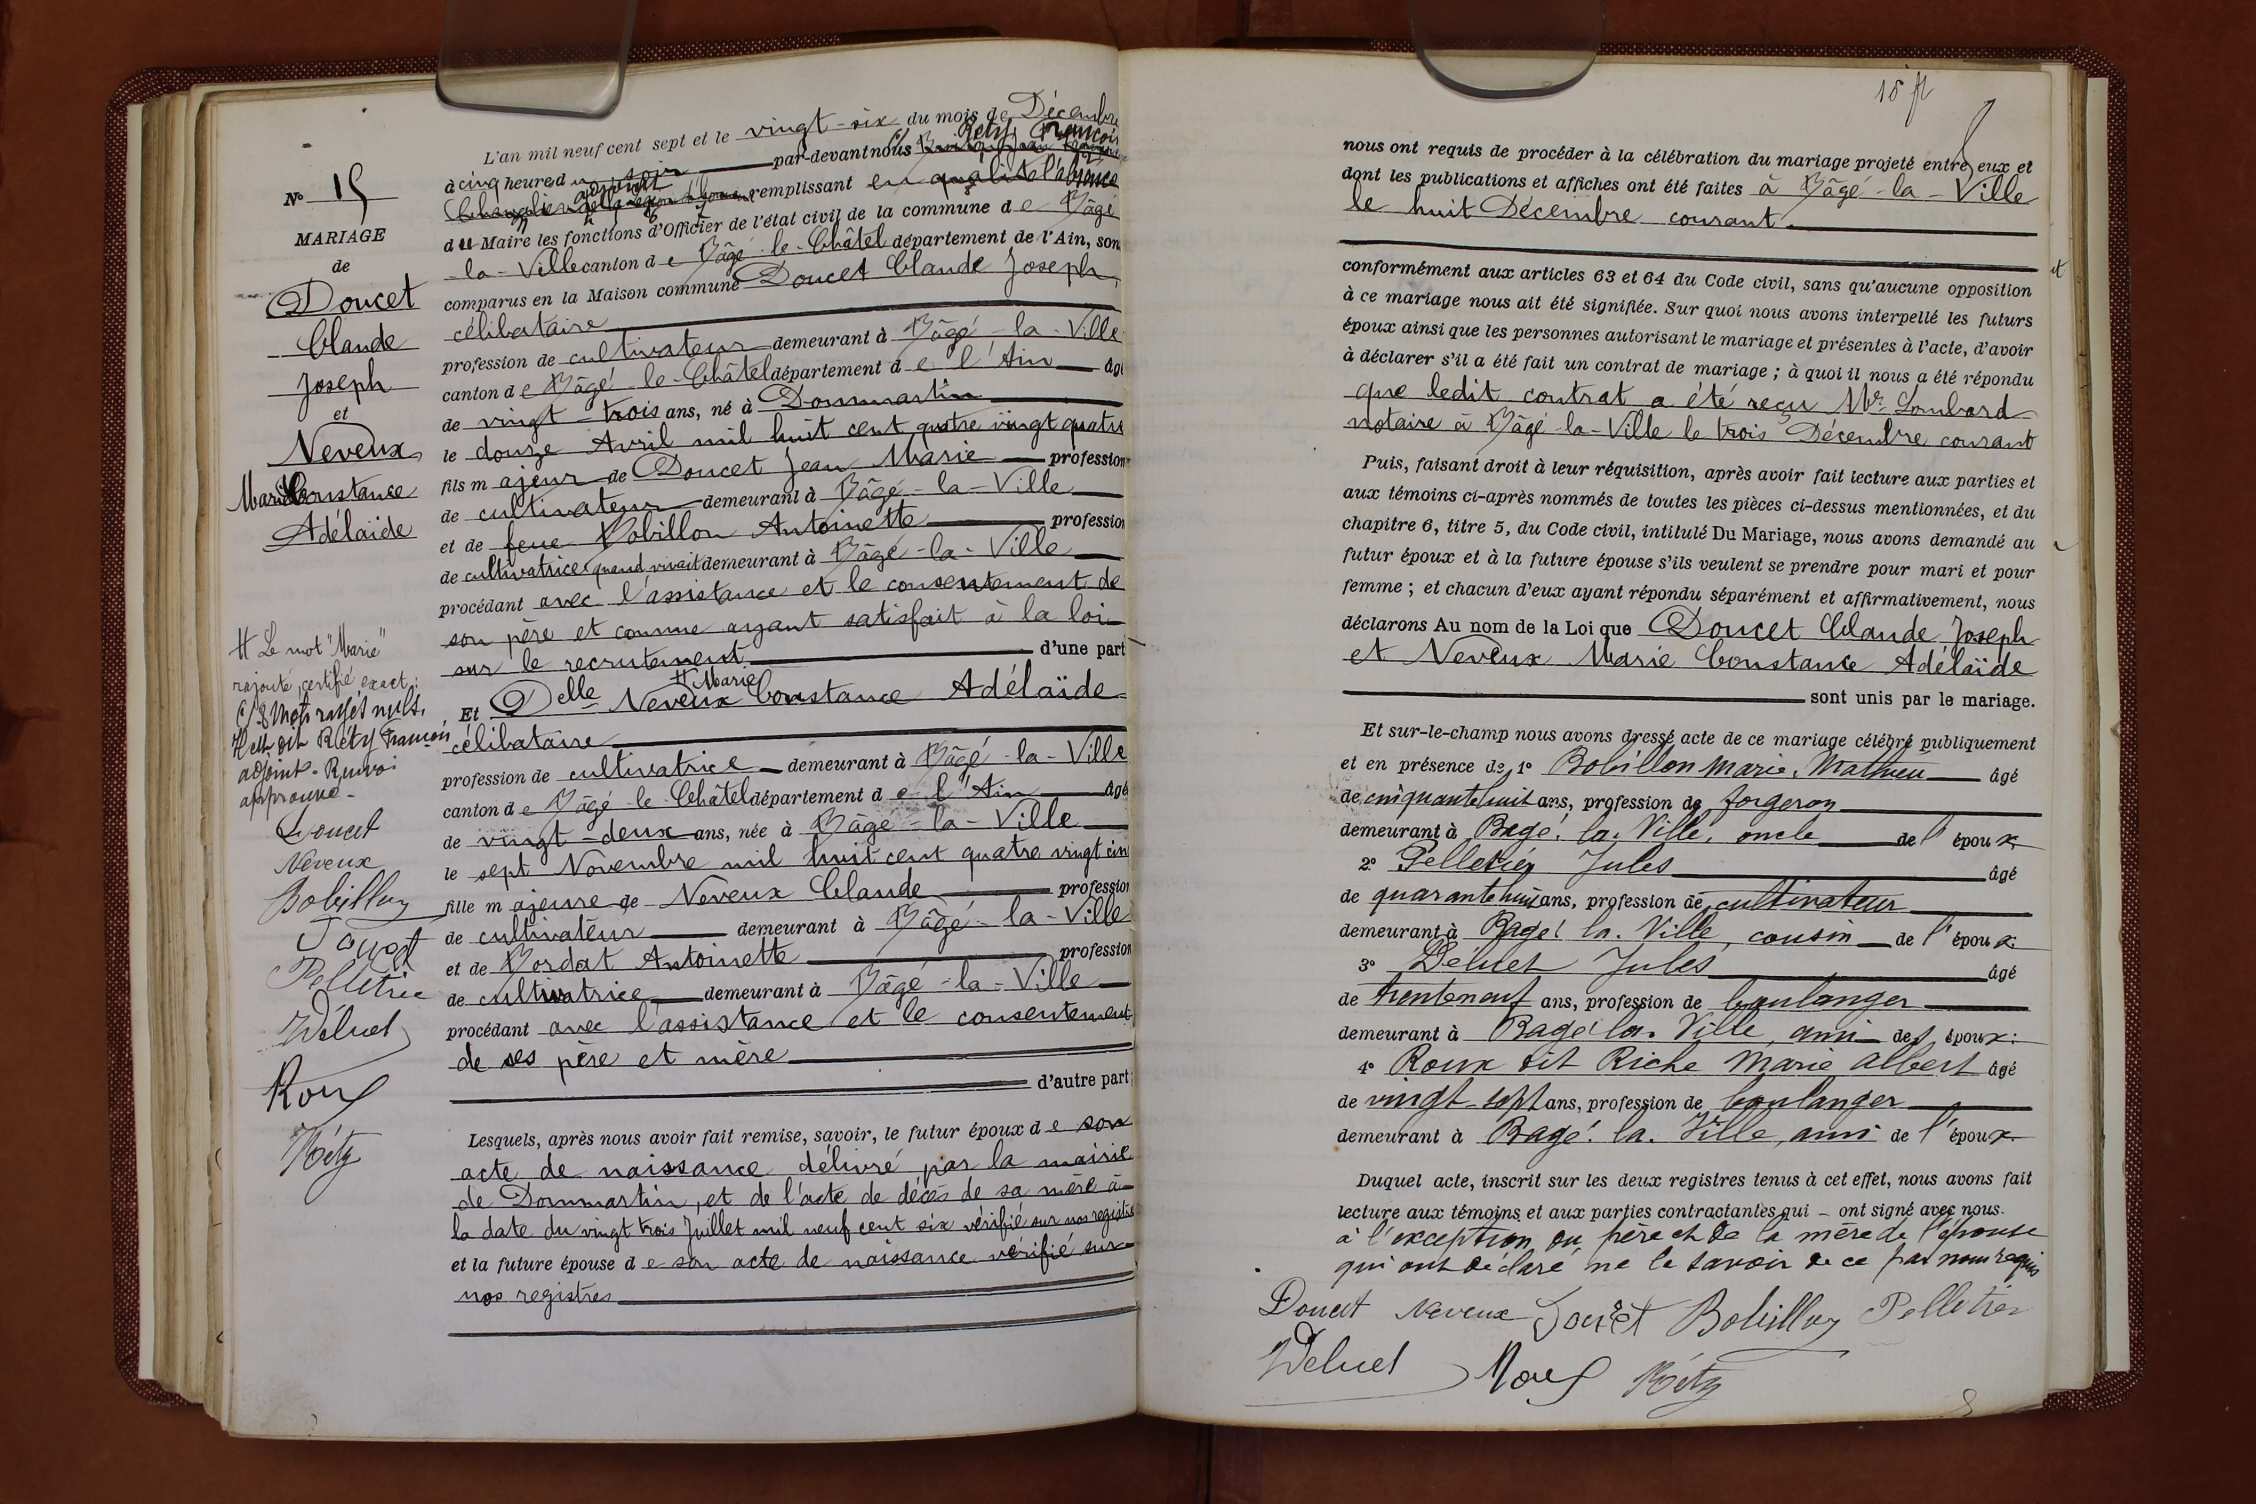 N° 15
MARIAGE
de
Doucet
Claude
Joseph
et
Neveux
Marie Constance
Adélaïde
# Le mot "Marie"
rajouté, certifié exact.
8 Mots rayés nuls.
dit Réty François
adjoint - Renvoi
approuvé -
Doucet
Neveux
Bobillon
Doucet
Pelletier
Déluet
Roux
Réty
L'an mil neuf cent sept et le vingt-six du mois de Décembre
à cinq heures du soir par-devant nous Réty François
adjoint remplissant en l'absence
du Maire les fonctions d'Officier de l'état civil de la commune de Bâgé
-la-Ville canton de Bâgé-le-Châtel département de l'Ain, sont
comparus en la Maison commune Doucet Claude Joseph,
célibataire
profession de cultivateur demeurant à Bâgé-la-Ville
canton de Bâgé-le-Châtel département de l'Ain âgé
de vingt-trois ans, né à Dommartin
le douze Avril mil huit cent quatre vingt quatre
fils majeur de Doucet Jean Marie profession
de cultivateur demeurant à Bâgé-la-Ville
et de feue Bobillon Antoinette profession
de cultivatrice quand vivait demeurant à Bâgé-la-Ville
procédant avec l'assistance et le consentement de
son père et comme ayant satisfait à la loi
sur le recrutement d'une part
# Marie
Et Delle Neveux Constance Adélaïde
célibataire
profession de cultivatrice demeurant à Bâgé-la-Ville
canton de Bâgé-le-Châtel département de l'Ain âgé
de vingt-deux ans, née à Bâgé-la-Ville
le sept Novembre mil huit cent quatre vingt cinq
fille majeure de Neveux Claude profession
de cultivateur demeurant à Bâgé-la-Ville
et de Bordat Antoinette profession
de cultivatrice demeurant à Bâgé-la-Ville
procédant avec l'assistance et le consentement
de ses père et mère
d'autre part;
Lesquels, après nous avoir fait remise, savoir, le futur époux de son
acte de naissance délivré par la mairie
de Dommartin, et de l'acte de décès de sa mère à
la date du vingt trois Juillet mil neuf cent six vérifié sur nos registres
et la future épouse de son acte de naissance vérifié sur
nos registres
18 ft
nous ont requis de procéder à la célébration du mariage projeté entre eux et
dont les publications et affiches ont été faites à Bâgé-la-Ville
le huit Décembre courant.
conformément aux articles 63 et 64 du Code civil, sans qu'aucune opposition
à ce mariage nous ait été signifiée. Sur quoi nous avons interpellé les futurs
époux ainsi que les personnes autorisant le mariage et présentes à l'acte, d'avoir
à déclarer s'il a été fait un contrat de mariage; à quoi il nous a été répondu
que ledit contrat a été reçu Me Lombard
notaire à Bâgé-la-Ville le trois Décembre courant
Puis, faisant droit à leur réquisition, après avoir fait lecture aux parties et
aux témoins ci-après nommés de toutes les pièces ci-dessus mentionnées, et du
chapitre 6, titre 5, du Code civil, intitulé Du Mariage, nous avons demandé au
futur époux et à la future épouse s'ils veulent se prendre pour mari et pour
femme; et chacun d'eux ayant répondu séparément et affirmativement, nous
déclarons Au nom de la Loi que Doucet Claude Joseph
et Neveux Marie Constance Adélaïde
sont unis par le mariage.
Et sur-le-champ nous avons dressé acte de ce mariage célébré publiquement
et en présence de 1° Bobillon Marie, Mathieu âgé
de cinquante huit ans, profession de forgeron
demeurant à Bagé la Ville, oncle de l'époux
2° Pelletier Jules âgé
de quarante huit ans, profession de cultivateur
demeurant à Bagé la Ville, cousin de l'époux:
3° Déluet Jules âgé
de trente neuf ans, profession de boulanger
demeurant à Bagé la Ville, ami des époux:
4° Roux dit Riche Marie Albert âgé
de vingt-sept ans, profession de boulanger
demeurant à Bagé la Ville, ami de l'époux
Duquel acte, inscrit sur les deux registres tenus à cet effet, nous avons fait
lecture aux témoins et aux parties contractantes qui - ont signé avec nous.
à l'exception du père et de la mère de l'épouse
qui ont déclaré ne le savoir de ce par nous requis
Doucet Neveux Doucet Bobillon Pelletier
Déluet Roux Réty